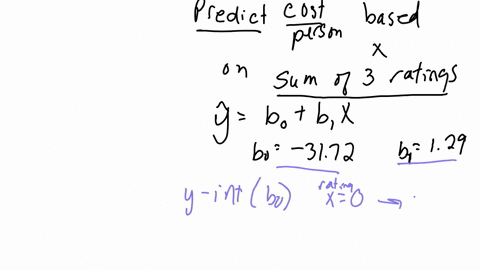 Predict cost/person based
on x
Sum of 3 ratings
ŷ = b₀ + b₁x
b₀ = -31.72 b₁ = 1.29
y-int (b₀) rating x=0 →